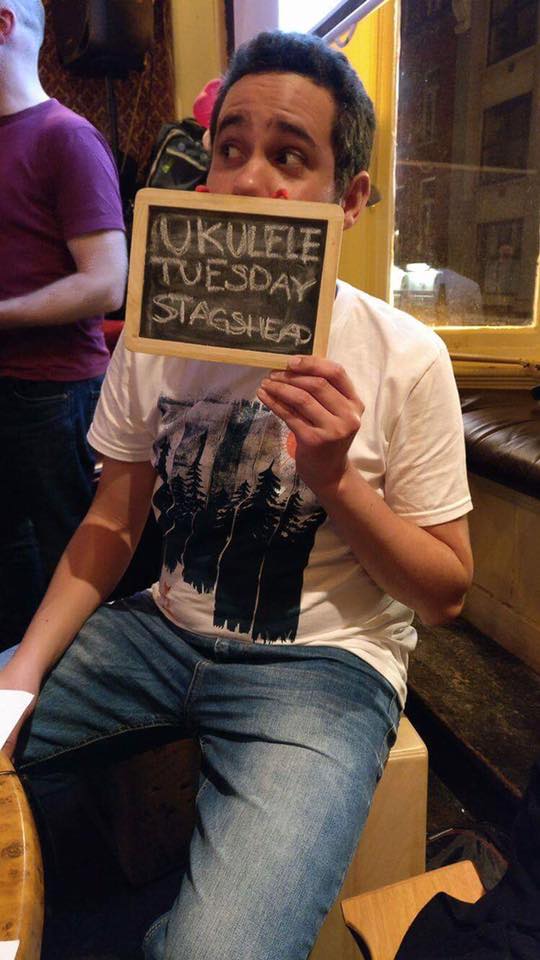 UKULELE
TUESDAY
STAGSHEAD